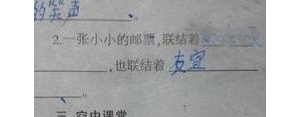 的笑声
2.一张小小的邮票,联结着
,也联结着 友宜
。
三 空中课堂